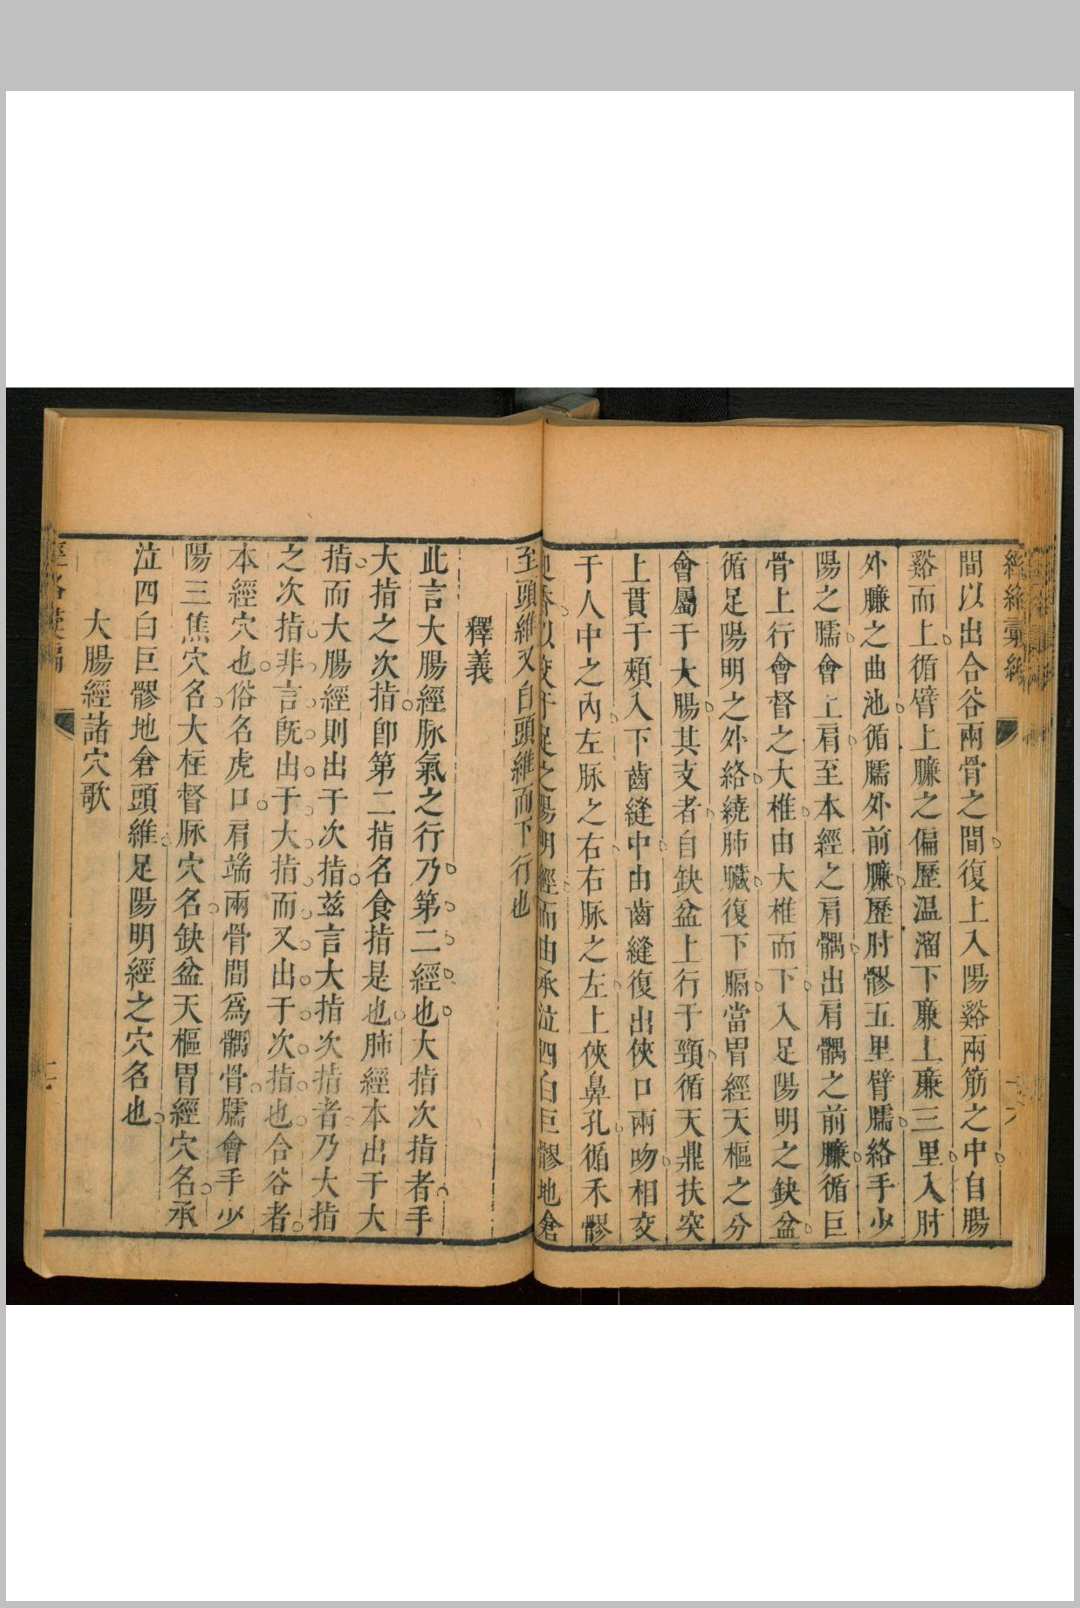 經絡彙編
間以出合谷兩骨之間復上入陽谿兩筋之中自腸
谿而上循臂上臁之偏歷温溜下亷上亷三里入肘
外臁之曲池循臑外前臁歷肘髎五里臂臑絡手少
陽之臑會上肩至本經之肩髃出肩髃之前臁循巨
骨上行會督之大椎由大椎而下入足陽明之缺盆
循足陽明之外絡繞肺臟復下膈當胃經天樞之分
會屬于大腸其支者自缺盆上行于頸循天鼎扶突
上貫于頰入下齒縫中由齒縫復出俠口兩吻相交
于人中之內左脉之右右脉之左上俠鼻孔循禾髎
迎香以交于足之陽明經而由承泣四白巨髎地倉
至頭維又自頭維而下行也
釋義
此言大腸經脉氣之行乃第二經也大指次指者手
大指之次指卽第二指名食指是也肺經本出于大
指而大腸經則出于次指茲言大指次指者乃大指
之次指非言旣出于大指而又出于次指也合谷者
本經穴也俗名虎口肩端兩骨間爲髃骨臑會手少
陽三焦穴名大柱督脉穴名缺盆天樞胃經穴名承
泣四白巨髎地倉頭維足陽明經之穴名也
大腸經諸穴歌
經絡彙編